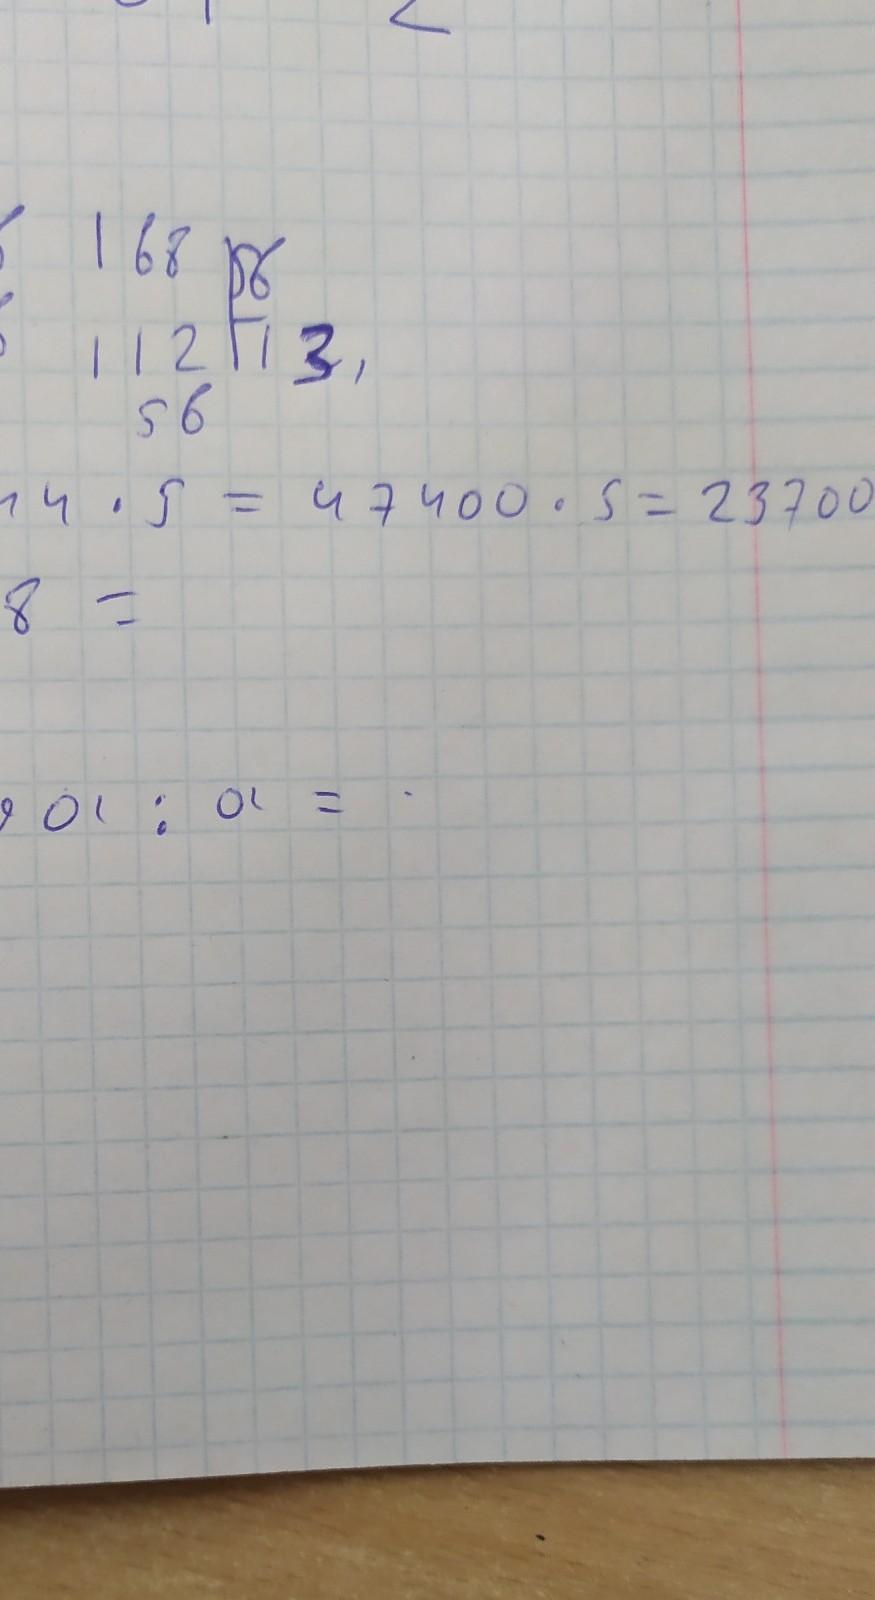 168 56
112 13,
56
4 · 5 = 47400 · 5 = 23700
8 =
a : a =